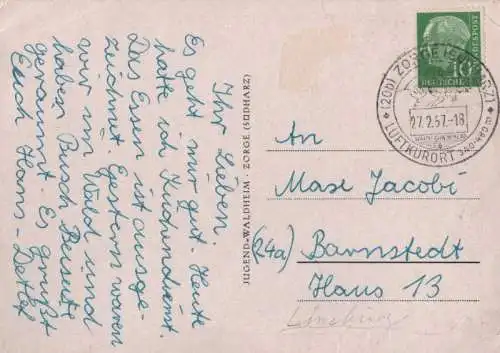 Ihr Lieben.
Es geht mir gut. Heute
hatte ich Küchendienst.
Das Essen ist ausge-
zeichnet. Gestern waren
wir im Wald und
haben Busch Beiseite
geräumt. Es grüßt
Euch Hans-Detlef
JUGEND-WALDHEIM · ZORGE (SÜDHARZ)
10
DEUTSCHE
BUNDESPOST
(20b) ZORGE (SÜDHARZ)
27.2.57.-18
LUFTKURORT 340-460 m
An
Max Jacobi
(24a) Barnstedt
Haus 13